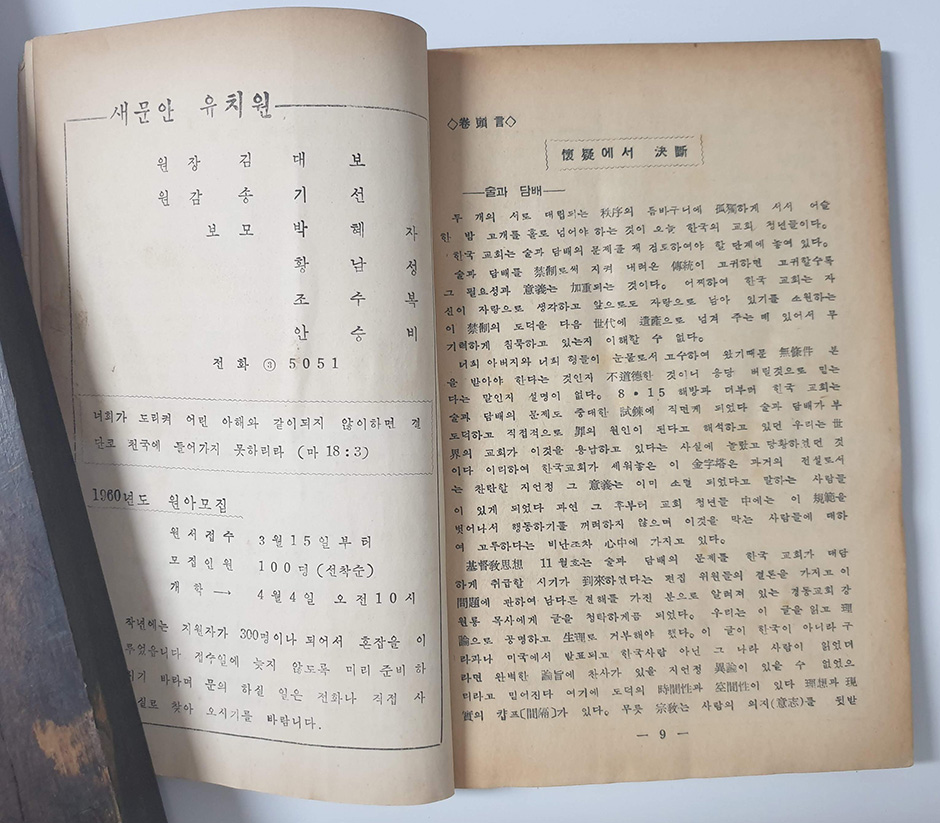 새문안 유치원
원장 김대보
원감 송기선
보모 박혜자
황남성
조수복
안승비
전화 ③ 5051
너희가 도리켜 어린 아해와 같이되지 않이하면 결
단코 천국에 들어가지 못하리라 (마 18:3)
1960년도 원아모집
원서접수 3월15일부터
모집인원 100명 (선착순)
개학 → 4월4일 오전10시
작년에는 지원자가 300명이나 되어서 혼잡을 이
루었읍니다 접수일에 늦지 않도록 미리 준비 하
시기 바라며 문의 하실 일은 전화나 직접 사
실로 찾아 오시기를 바랍니다.
◇卷頭言◇
懷疑에서 決斷
——술과 담배——
두 개의 서로 대립되는 秩序의 틈바구니에 孤獨하게 서서 어슬
한 밤 고개를 홀로 넘어야 하는 것이 오늘 한국의 교회 청년들이다.
한국 교회는 술과 담배의 문제를 재 검토하여야 할 단계에 놓여 있다.
술과 담배를 禁制로써 지켜 내려온 傳統이 고귀하면 고귀할수록
그 필요성과 意義는 加重되는 것이다. 어찌하여 한국 교회는 자
신이 자랑으로 생각하고 앞으로도 자랑으로 남아 있기를 소원하는
이 禁制의 도덕을 다음 世代에 遺產으로 넘겨 주는데 있어서 무
기력하게 침묵하고 있는지 이해할 수 없다.
너희 아버지와 너희 형들이 눈물로서 고수하여 왔기때문 無條件 본
을 받아야 한다는 것인지 不道德한 것이니 응당 버릴것으로 믿는
다는 말인지 설명이 없다. 8·15 해방과 더부러 한국 교회는
술과 담배의 문제도 중대한 試鍊에 직면게 되었다 술과 담배가 부
도덕하고 직접적으로 罪의 원인이 된다고 해석하고 있던 우리는 世
界의 교회가 이것을 용납하고 있다는 사실에 놀랐고 당황하였던 것
이다 이리하여 한국교회가 세워놓은 이 金字塔은 과거의 전설로서
는 찬란할 지언정 그 意義는 이미 소멸 되었다고 말하는 사람들
이 있게 되었다 과연 그 후부터 교회 청년들 中에는 이 規範을
벗어나서 행동하기를 꺼려하지 않으며 이것을 막는 사람들에 대하
여 고루하다는 비난조차 心中에 가지고 있다.
基督敎思想 11월호는 술과 담배의 문제를 한국 교회가 대담
하게 취급할 시기가 到來하였다는 편집 위원들의 결론을 가지고 이
問題에 관하여 남다른 견해를 가진 분으로 알려져 있는 경동교회 강
원룡 목사에게 글을 청탁하게끔 되었다. 우리는 이 글을 읽고 理
論으로 공명하고 生理로 거부해야 했다. 이 글이 한국이 아니라 구
라파나 미국에서 발표되고 한국사람 아닌 그 나라 사람이 읽었더
라면 완벽한 論旨에 찬사가 있을 지언정 異論이 있을 수 없었으
리라고 믿어진다 여기에 도덕의 時間性과 空間性이 있다 理想과 現
實의 캽프[間隔]가 있다. 무릇 宗敎는 사람의 의지(意志)를 뒷받
— 9 —